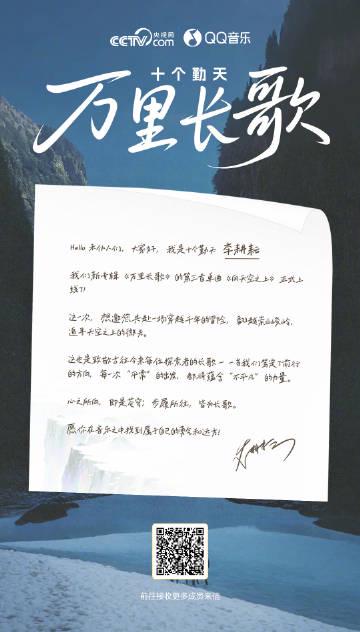 CCTV 央视网 .com QQ音乐
十个勤天
万里长歌
Hello 禾伙人们，大家好，我是十个勤天 李耕耘
我们新专辑《万里长歌》的第三首单曲《向天空之上》正式上
线了！
这一次，想邀您共赴一场穿越千年的冒险，翻越崇山峻岭，
追寻天空之上的
这也是致敬古往今来每位探索者的长歌——首我们笃定了前行
的方向，每一次“平常”的出发，都将蕴含“不平凡”的力量。
心之所向，即是苍穹；步履所往，皆有长歌。
愿你在音乐之中找到属于自己的勇气和远方！
前往接收更多成员来信